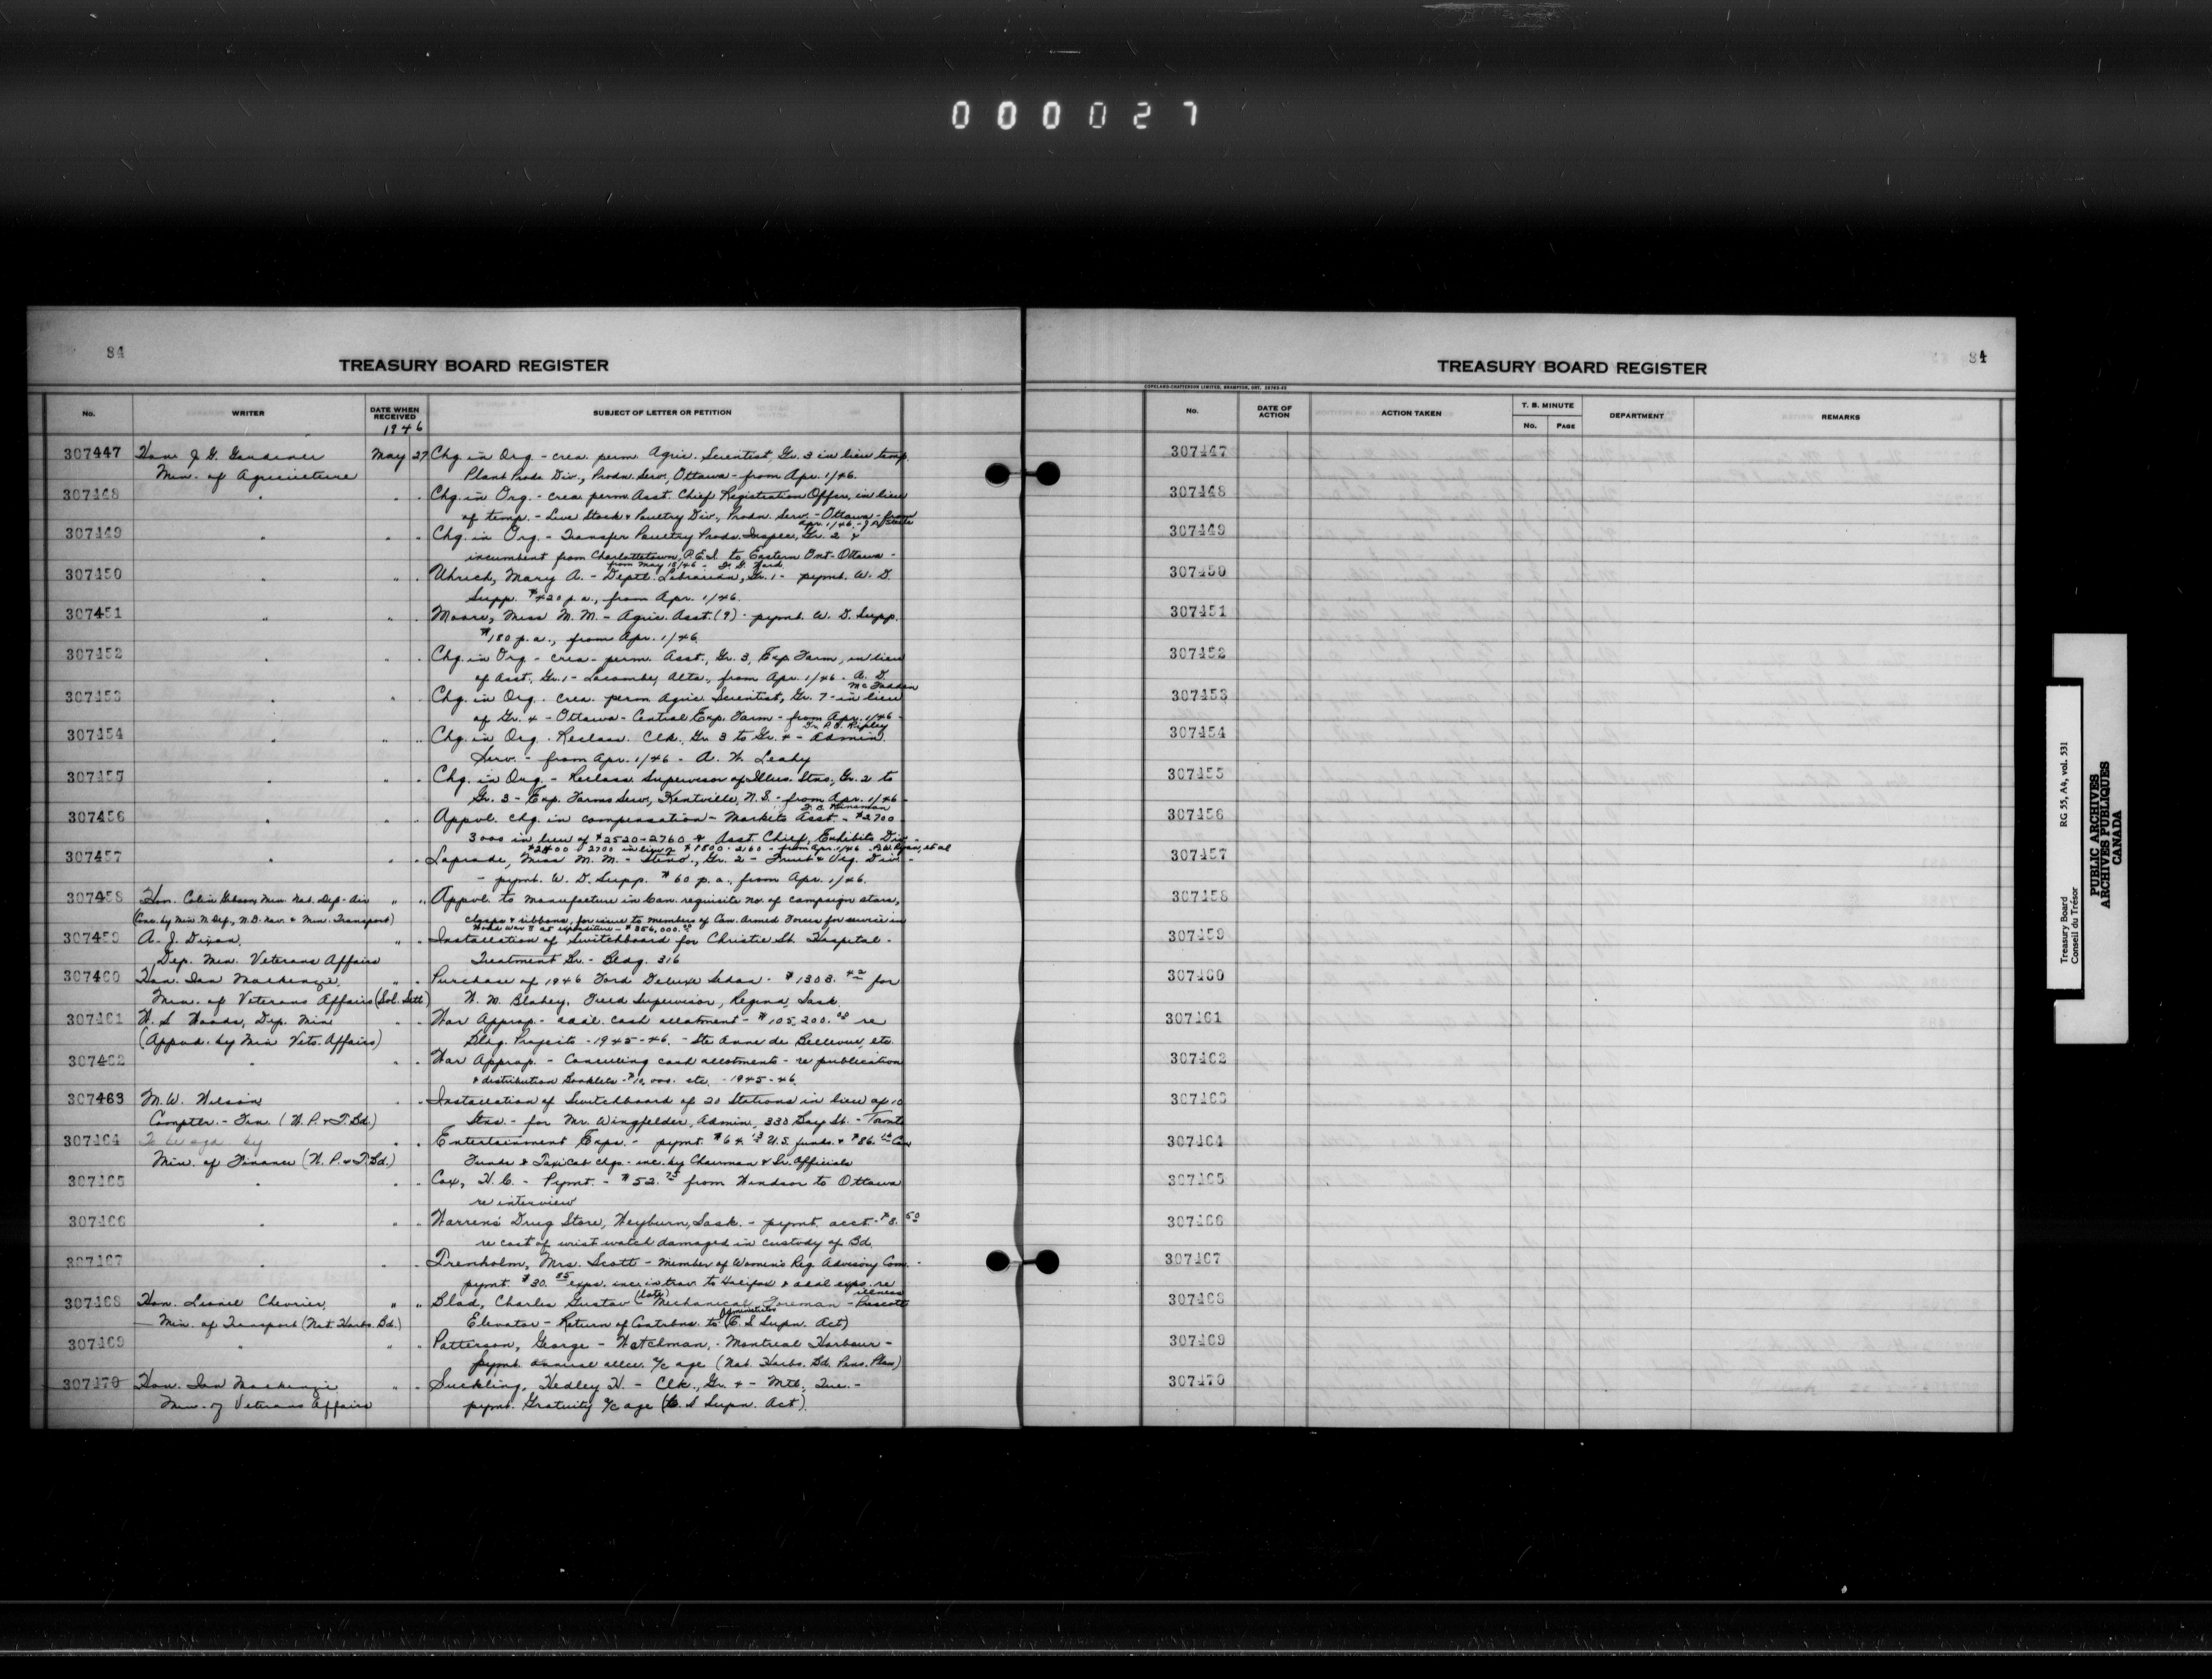 000027
84
TREASURY BOARD REGISTER
No.
WRITER
DATE WHEN RECEIVED
1946
SUBJECT OF LETTER OR PETITION
307447 Hon. J. G. Gardiner May 27 Chg in Org - crea. perm. Agric. Scientist Gr. 3 in lieu temp.
Min. of Agriculture Plant Prods Div., Prodn. Serv., Ottawa - from Apr. 1/46.
307448 " " " Chg. in Org. - crea. perm. Asst. Chief Registration Officer, in lieu
of temp. - Live Stock & Poultry Div., Prodn. Serv. - Ottawa - from
Apr. 1/46. - J. P. Steele
307449 " " " Chg. in Org. - Transfer Poultry Prods. Inspec., Gr. 2 &
incumbent from Charlottetown, P.E.I. to Eastern Ont - Ottawa -
from May 15/46 - D. D. Ward
307450 " " " Uhrich, Mary A. - Deptl. Librarian, Gr. 1 - pymt. W. D.
Supp. $420 p.a., from Apr. 1/46.
307451 " " " Moore, Miss M. M. - Agric. Asst. (9) - pymt. W. D. Supp.
$180 p.a., from Apr. 1/46.
307452 " " " Chg. in Org - crea - perm. Asst., Gr. 3, Exp Farm, in lieu
of Asst., Gr. 1 - Lacombe, Alta., from Apr. 1/46 - A. D.
McFadden
307453 " " " Chg. in Org. - crea. perm. Agric. Scientist, Gr. 7 - in lieu
of Gr. 4 - Ottawa - Central Exp. Farm - from Apr. 1/46 -
Dr. P. O. Ripley
307454 " " " Chg. in Org. - Reclass. Clk., Gr 3 to Gr. 4 - Admin.
Serv. - from Apr. 1/46 - A. W. Leahy
307455 " " " Chg. in Org. - Reclass. Supervisor of Illus. Stns., Gr. 2 to
Gr. 3 - Exp. Farms Serv., Kentville, N.S. - from Apr. 1/46 -
307456 " " " Appvl. chg. in compensation - Markets Asst. - $2700
3000 in lieu of $2520-2760 & Asst. Chief, Exhibits Div. -
$2400 - 2700 in lieu of $1800 - 2160 - from Apr. 1/46 et al
307457 " " " Laprade, Miss M. M. - Steno., Gr. 2 - Fruit & Veg. Div. -
- pymt. W. D. Supp. $60 p.a., from Apr. 1/46.
307458 Hon. Colin Gibson, Min. Nat. Def - Air " " Appvl. to manufacture in Can. requisite no. of campaign stars,
(Conc. by Min. N. Def., N. D. Nav. & Min. Transport) clasps & ribbons, for issue to members of Can. Armed Forces for service in
World War II at expenditure - $356,000.00
307459 A. J. Dixon, " " Installation of Switchboard for Christie St. Hospital -
Dep. Min. Veterans Affairs Treatment Br. - Bldg. 316
307460 Hon. Ian Mackenzie, " " Purchase of 1946 Ford Deluxe Sedan - $1303.42 for
Min. of Veterans Affairs (Sol. Sett) W. M. Blahey, Field Supervisor, Regina, Sask.
307461 W. S. Woods, Dep. Min " " War Approp. - addl. cash allotment - $105,200.00 re
(Appvd. by Min Vets. Affairs) Bldg. Projects - 1945-46. - Ste Anne de Bellevue, etc.
307462 " " " War Approp. - Cancelling cash allotments - re publication
& distribution Booklets - $10,000. etc. - 1945-46.
307463 M. W. Wilson " " Installation of Switchboard of 20 Stations in lieu of 10
Comptlr. - Fin. (W. P. & T. Bd.) Stns. - for Mr. Wingfelder, Admin., 330 Bay St. - Toronto
307464 " " Entertainment Exps. - pymt. $64.13 U.S. funds &
Min. of Finance (W. P. & T. Bd.) Funds & Taxi Cab chgs - inc. by Chairman & Sr. Officials
307465 " " " Cox, H. C. - Pymt. - $52.75 from Windsor to Ottawa
re interview
307466 " " " Warrens Drug Store, Weyburn, Sask. - pymt. acct. - $8.50
re cost of wrist watch damaged in custody of Bd.
307467 " " " Trenholm, Mrs. Scott - Member of Women's Reg. Advisory Com. -
pymt. $30.85 exps. inc. in trav. to Halifax & addl exps. re
illness
307468 Hon. Lionel Chevrier, " " Blad, Charles Gustav (late) Mechanical Foreman - Prescott
Min. of Transport (Nat. Harbs. Bd.) Elevator - Return of Contrbns. to Administrator (C. S Supn. Act)
307469 " " " Patterson, George - Watchman, - Montreal Harbour -
pymt. annual allce. a/c age (Nat. Harbs. Bd. Pens. Plan)
307470 Hon. Ian Mackenzie " " Suckling, Hedley H. - Clk., Gr. 4 - Mtl., Que. -
Min. of Veterans Affairs pymt. Gratuity a/c age (C. S Supn. Act)
84
TREASURY BOARD REGISTER
COPELAND-CHATTERSON LIMITED, BRAMPTON, ONT.
No.
DATE OF ACTION
ACTION TAKEN
T. B. MINUTE
No.
PAGE
DEPARTMENT
REMARKS
307447
307448
307449
307450
307451
307452
307453
307454
307455
307456
307457
307458
307459
307460
307461
307462
307463
307464
307465
307466
307467
307468
307469
307470
Treasury Board RG 55, A4, vol. 531
Conseil du Trésor
PUBLIC ARCHIVES
ARCHIVES PUBLIQUES
CANADA